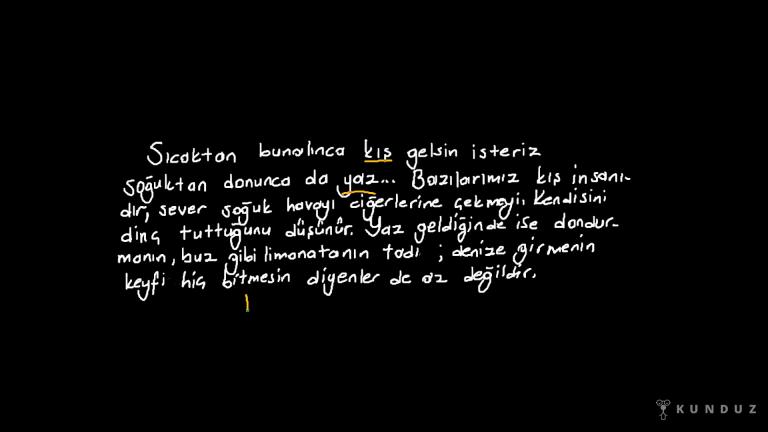 Sıcaktan bunalınca kış gelsin isteriz
soğuktan donunca da yaz... Bazılarımız kış insanı-
dır, sever soğuk havayı ciğerlerine çekmeyi. Kendisini
dinç tuttuğunu düşünür. Yaz geldiğinde ise dondur-
manın, buz gibi limonatanın tadı ; denize girmenin
keyfi hiç bitmesin diyenler de az değildir.
KUNDUZ